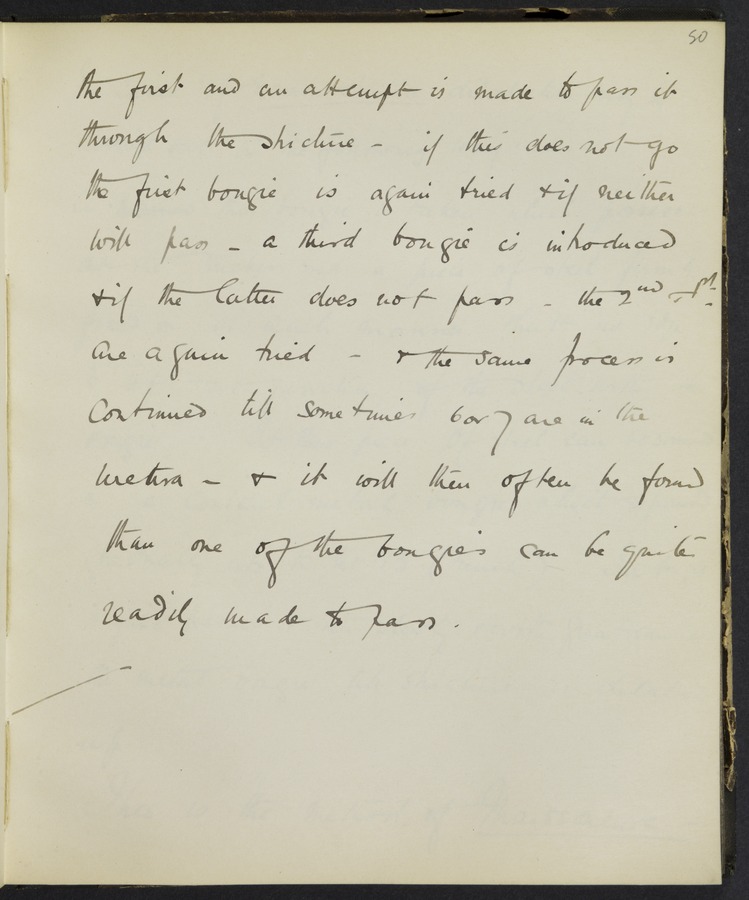 50
the first and an attempt is made to pass it
through the stricture - if this does not go
the first bougie is again tried & if neither
will pass - a third bougie is introduced
& if the latter does not pass - the 2nd & 1st
are again tried - & the same process is
continued till sometimes 6 or 7 are in the
urethra - & it will then often be found
than one of the bougies can be quite
readily made to pass.